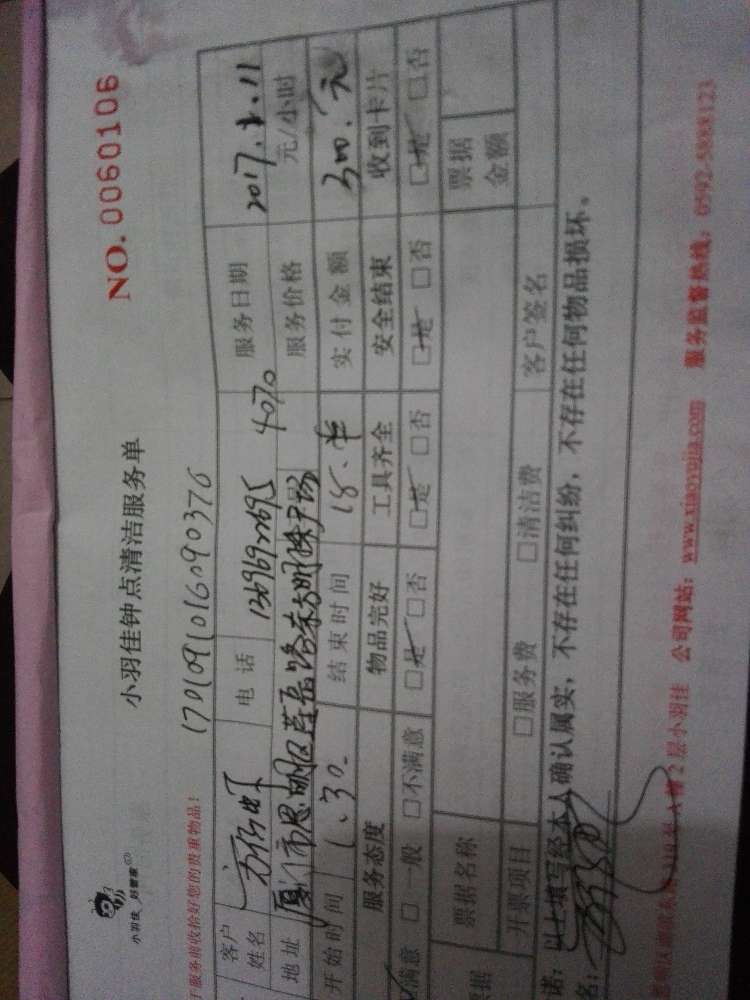 小羽佳 好管家
小羽佳钟点清洁服务单
NO. 0060106
1701091016090376
服务前收拾好您的贵重物品!
客户姓名 电话 13696922695 服务日期 2017.1.11
地址 厦门市思明区莲岳路 4070 服务价格 元/小时
开始时间 1.30 结束时间 实付金额 300.元
服务态度 物品完好 工具齐全 安全结束 收到卡片
满意 □一般 □不满意 □是 □否 □是 □否 □是 □否 □是 □否
票据名称 票据金额
开票项目 □服务费 □清洁费 客户签名
诺:以上填写经本人确认属实,不存在任何纠纷,不存在任何物品损坏。
名:
A幢2层小羽佳 公司网站:www.xiaoyujia.com 服务监督热线:0592-5888123